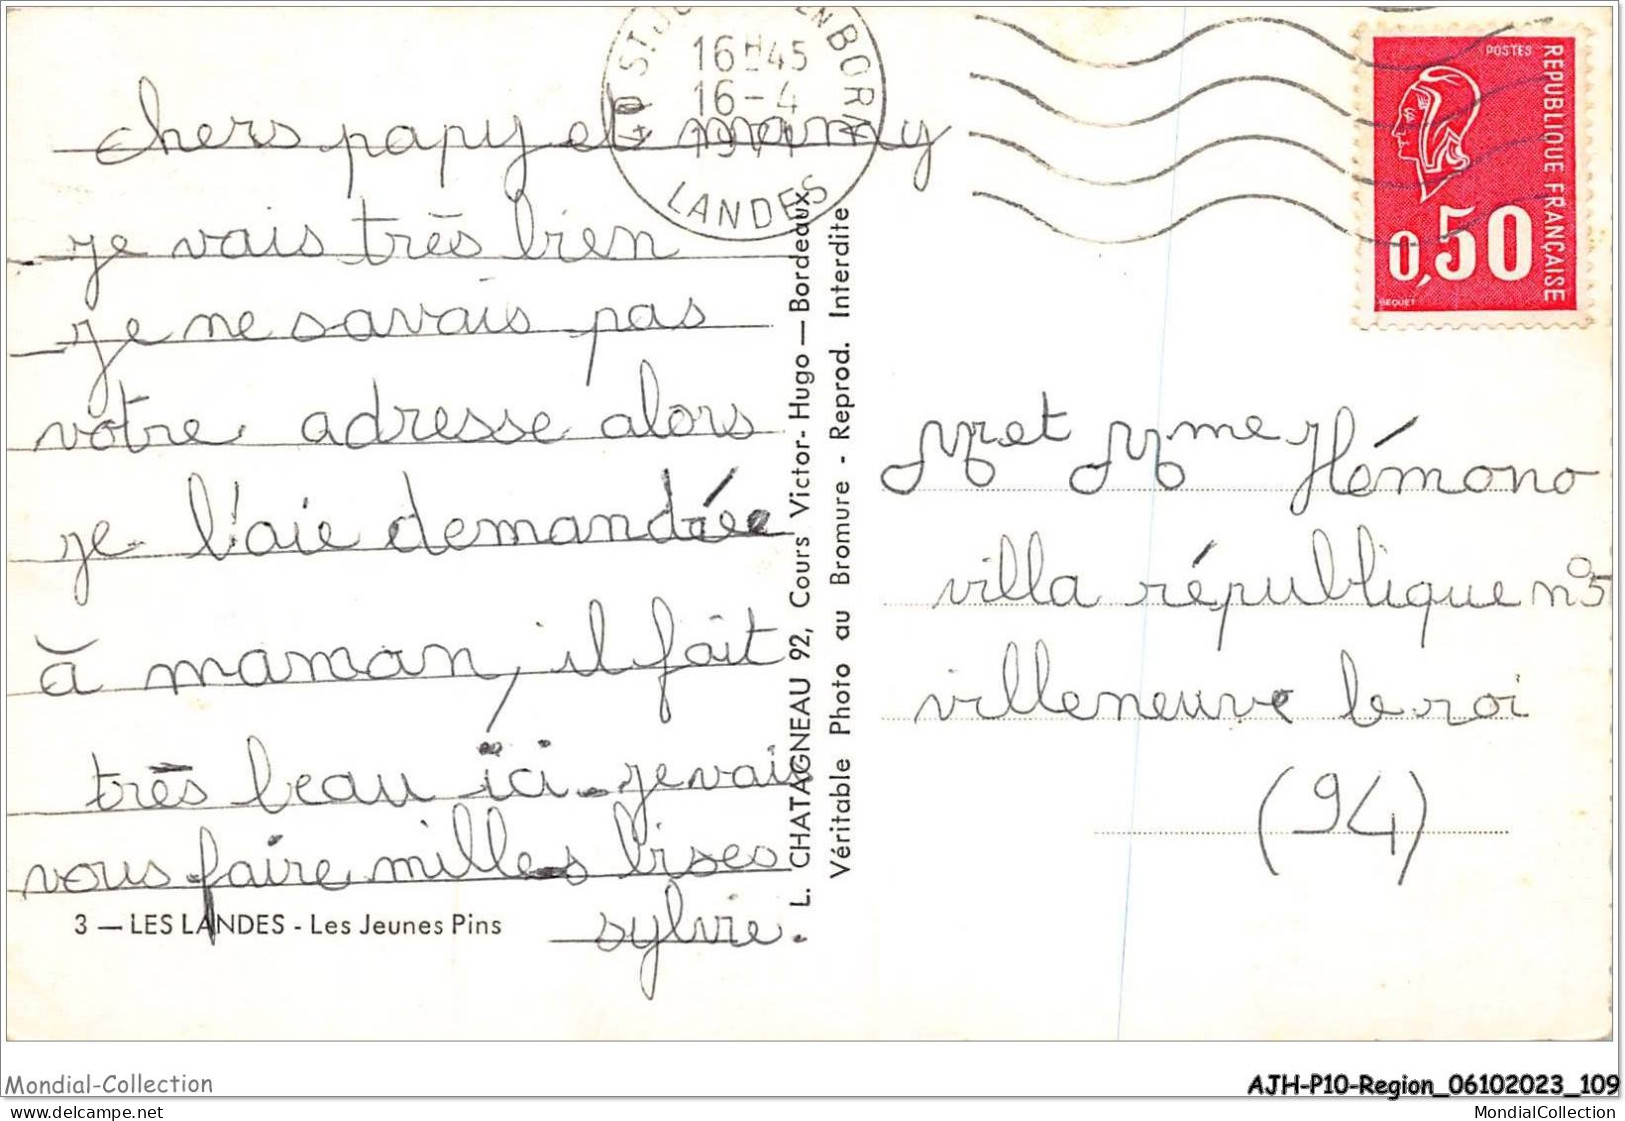 16H45
16-4
LANDES
POSTES
REPUBLIQUE FRANÇAISE
0,50
BEQUET
chers papy et mamy
je vais très bien
je ne savais pas
votre adresse alors
je l'aie demandée
à maman, il fait
très beau ici. je vais
vous faire milles bises
sylvie.
3 — LES LANDES - Les Jeunes Pins
L. CHATAGNEAU 92, Cours Victor-Hugo — Bordeaux
Véritable Photo au Bromure - Reprod. Interdite
Mr et Mme Hémono
villa république n°5
villeneuve le roi
(94)
Mondial-Collection
AJH-P10-Region_06102023_109
www.delcampe.net
MondialCollection